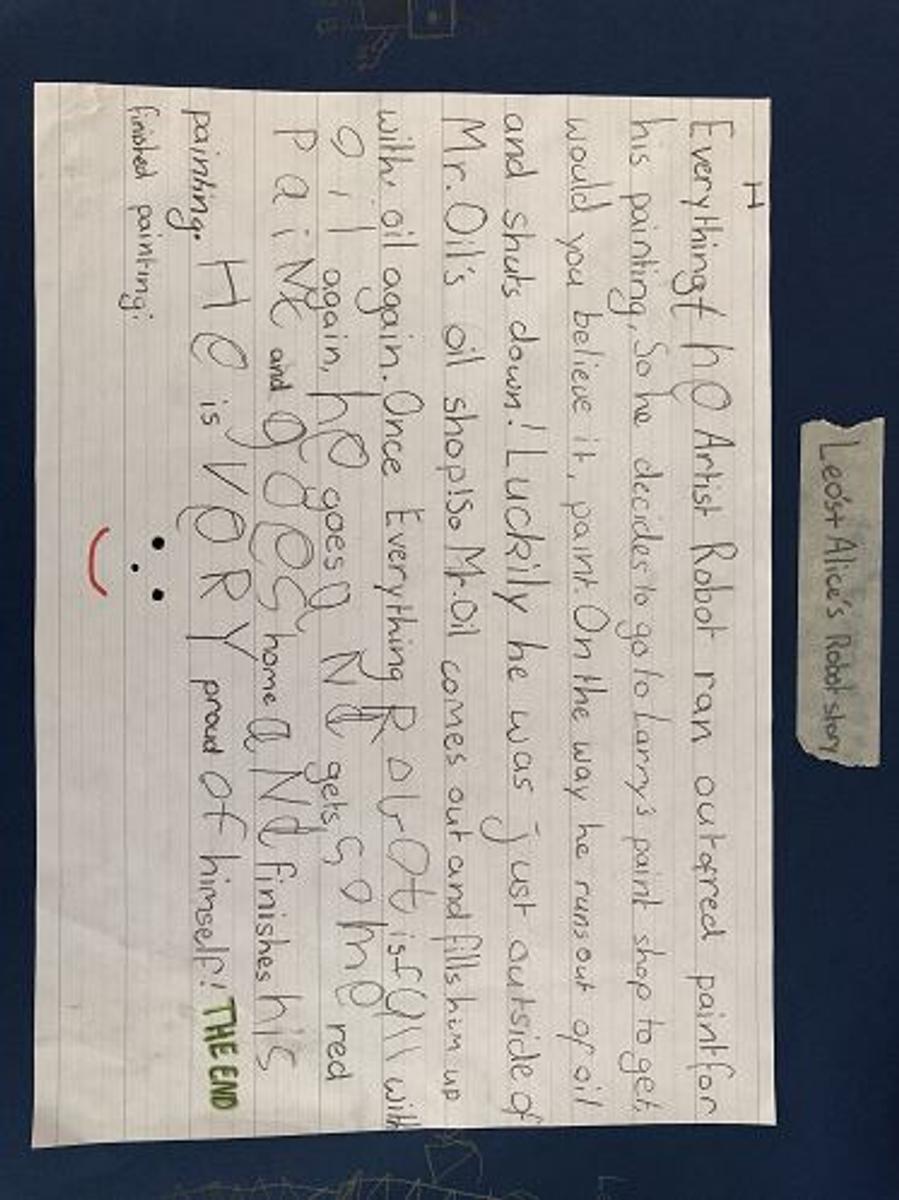 Leo's + Alice's Robot story
Everything the Artist Robot ran out of red paint for
his painting, So he decides to go to Larry's paint shop to get,
would you believe it, paint. On the way he runs out of oil
and shuts down! Luckily he was just outside of
Mr. Oil's oil shop! So Mr. Oil comes out and fills him up
with oil again. Once Everything Robot is full with
oil again, he goes aNd gets some red
PaiNt and goes home aNd finishes his
painting. He is VeRY proud of himself! THE END
finished painting: